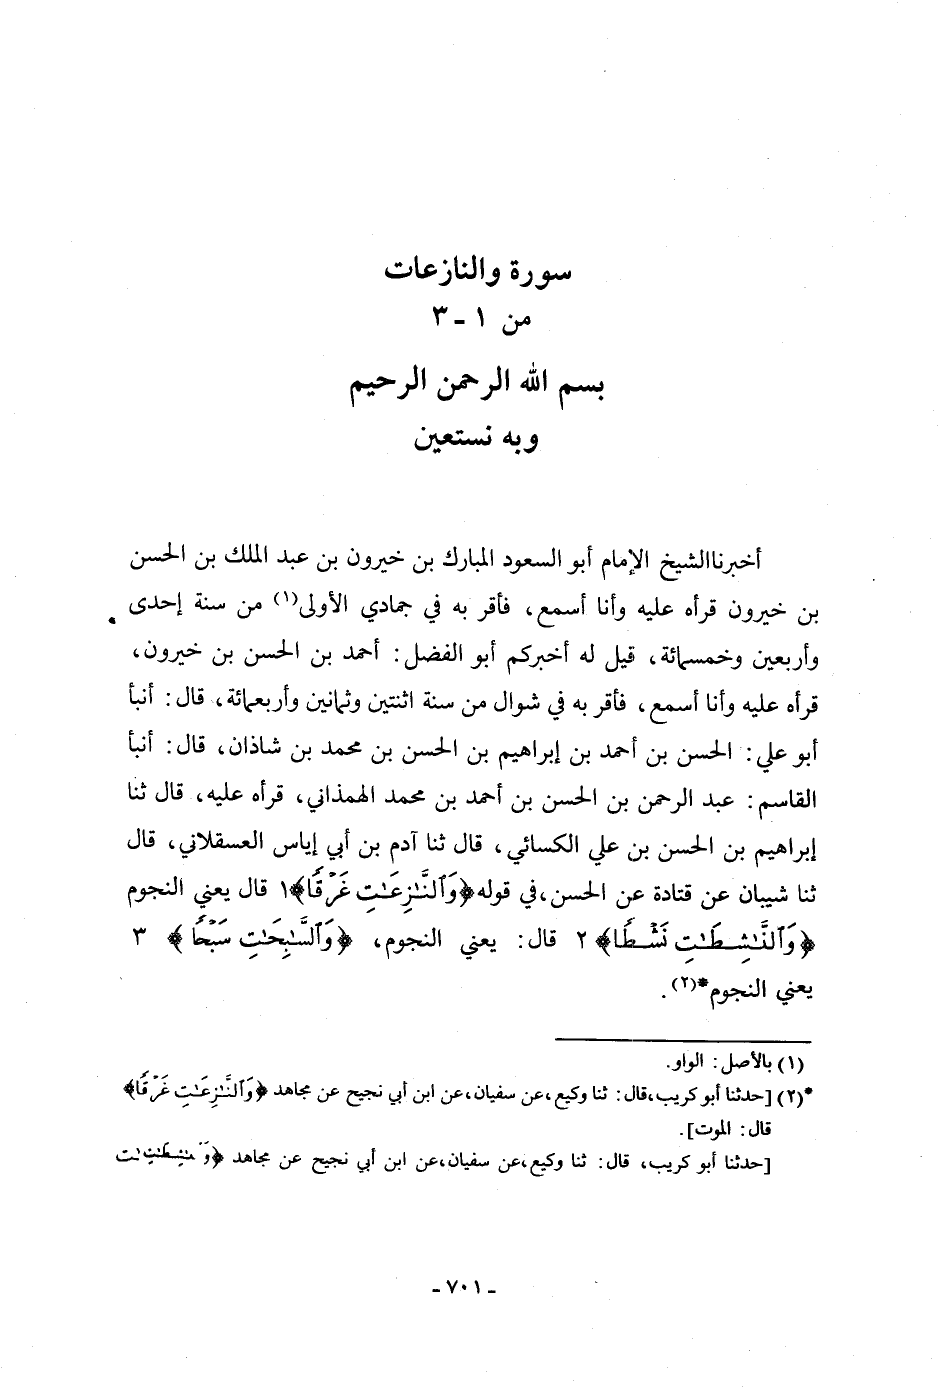 سورة والنازعات
من ١ - ٣
بسم الله الرحمن الرحيم
وبه نستعين
أخبرناالشيخ الإمام أبو السعود المبارك بن خيرون بن عبد الملك بن الحسن
بن خيرون قرأه عليه وأنا أسمع، فأقر به في جمادي الأولى(١) من سنة إحدى
وأربعين وخمسمائة، قيل له أخبركم أبو الفضل: أحمد بن الحسن بن خيرون،
قرأه عليه وأنا أسمع، فأقر به في شوال من سنة اثنتين وثمانين وأربعمائة، قال: أنبأ
أبو علي: الحسن بن أحمد بن إبراهيم بن الحسن بن محمد بن شاذان، قال: أنبأ
القاسم: عبد الرحمن بن الحسن بن أحمد بن محمد الهمذاني، قرأه عليه، قال ثنا
إبراهيم بن الحسن بن علي الكسائي، قال ثنا آدم بن أبي إياس العسقلاني، قال
ثنا شيبان عن قتادة عن الحسن، في قوله ﴿وَٱلنَّـٰزِعَـٰتِ غَرْقًا﴾١ قال يعني النجوم
﴿وَٱلنَّـٰشِطَـٰتِ نَشْطًا﴾ ٢ قال: يعني النجوم، ﴿وَٱلسَّـٰبِحَـٰتِ سَبْحًا﴾ ٣
يعني النجوم*(٢).
(١) بالأصل: الواو.
*(٢) [حدثنا أبو كريب، قال: ثنا وكيع، عن سفيان، عن ابن أبي نجيح عن مجاهد ﴿وَٱلنَّـٰزِعَـٰتِ غَرْقًا﴾
قال: الموت].
[حدثنا أبو كريب، قال: ثنا وكيع، عن سفيان، عن ابن أبي نجيح عن مجاهد
- ٧٠١ -